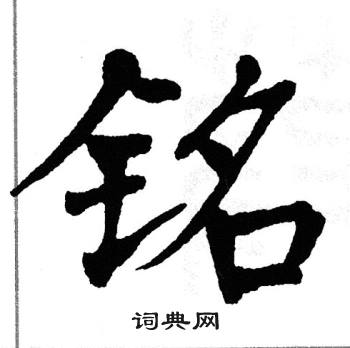 銘
词典网